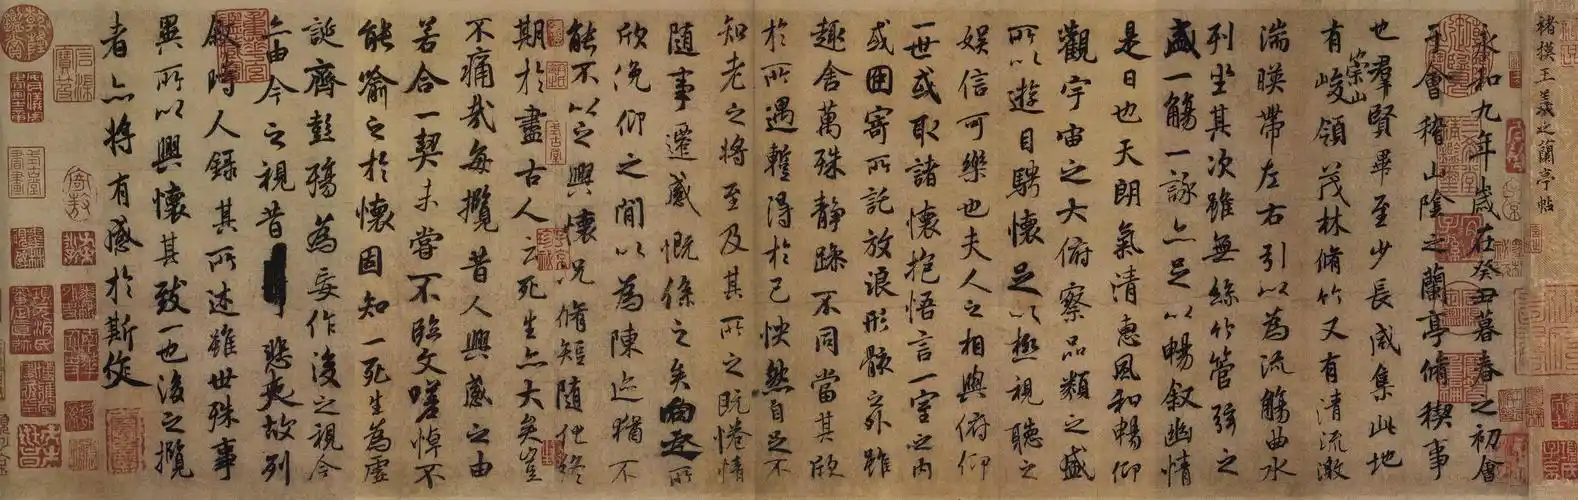 褚摸王羲之蘭亭帖
永和九年歲在癸丑暮春之初會
于會稽山陰之蘭亭脩稧事
也羣賢畢至少長咸集此地
有崇山峻領茂林脩竹又有清流激
湍暎帶左右引以為流觴曲水
列坐其次雖無絲竹管弦之
盛一觴一詠亦足以暢叙幽情
是日也天朗氣清惠風和暢仰
觀宇宙之大俯察品類之盛
所以遊目騁懷足以極視聽之
娛信可樂也夫人之相與俯仰
一世或取諸懷抱悟言一室之內
或因寄所託放浪形骸之外雖
趣舍萬殊静躁不同當其欣
於所遇蹔得於己怏然自足不
知老之將至及其所之既惓情
隨事遷感慨係之矣向之所
欣俛仰之閒以為陳迹猶不
能不以之興懷况脩短隨化終
期於盡古人云死生亦大矣豈
不痛哉每攬昔人興感之由
若合一契未嘗不臨文嗟悼不
能喻之於懷固知一死生為虛
誕齊彭殤為妄作後之視今
亦由今之視昔悲夫故列
叙時人錄其所述雖世殊事
異所以興懷其致一也後之攬
者亦將有感於斯文